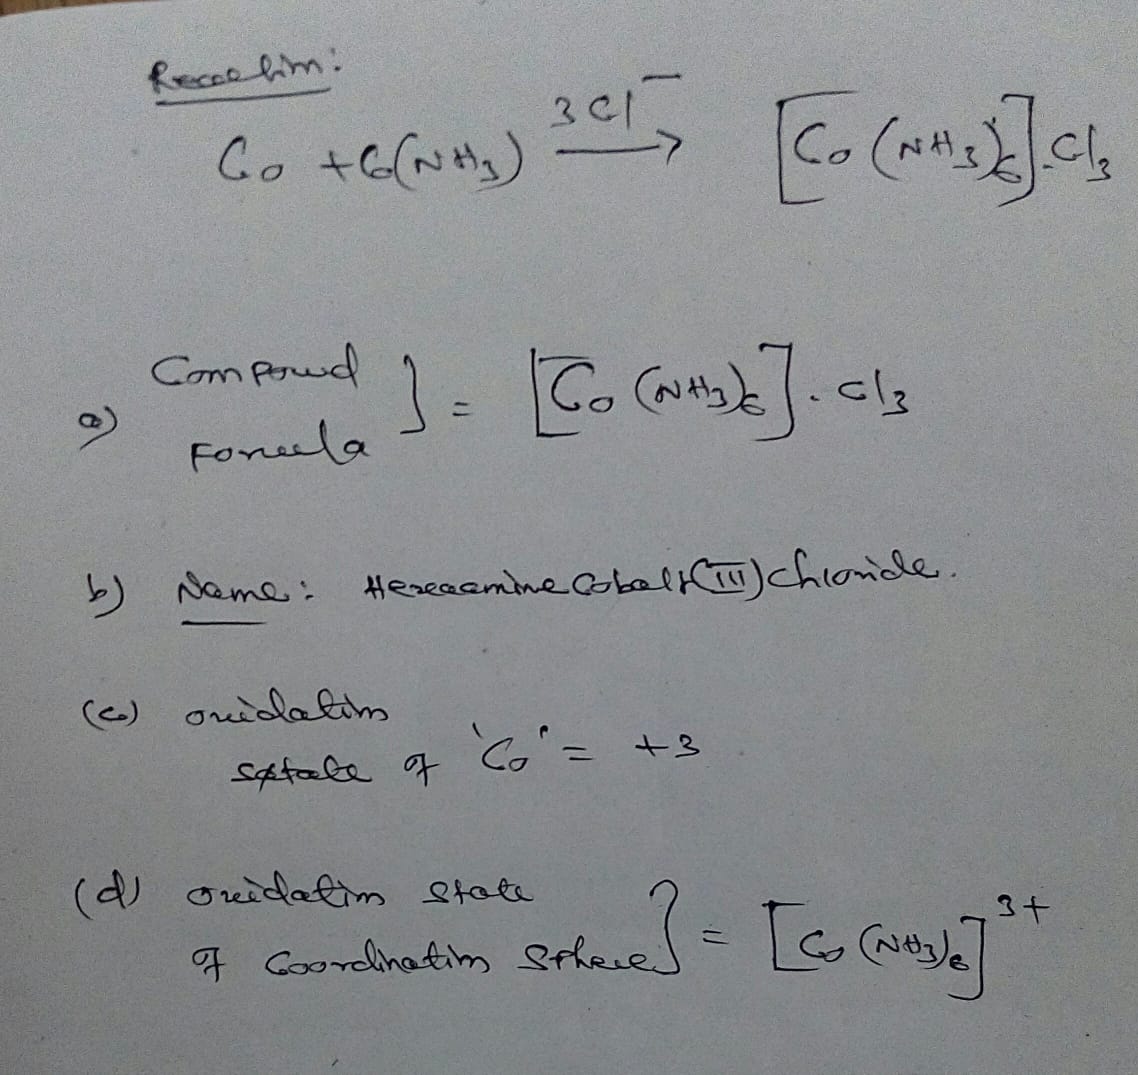 Reaction:
Co + 6(NH₃) —3Cl⁻→ [Co(NH₃)₆].Cl₃
a) Compound Formula } = [Co(NH₃)₆].Cl₃
b) Name: Hexaamine Cobalt(III) chloride.
(c) oxidation
state of 'Co' = +3
(d) oxidation state
of Coordination Sphere } = [Co(NH₃)₆]³⁺